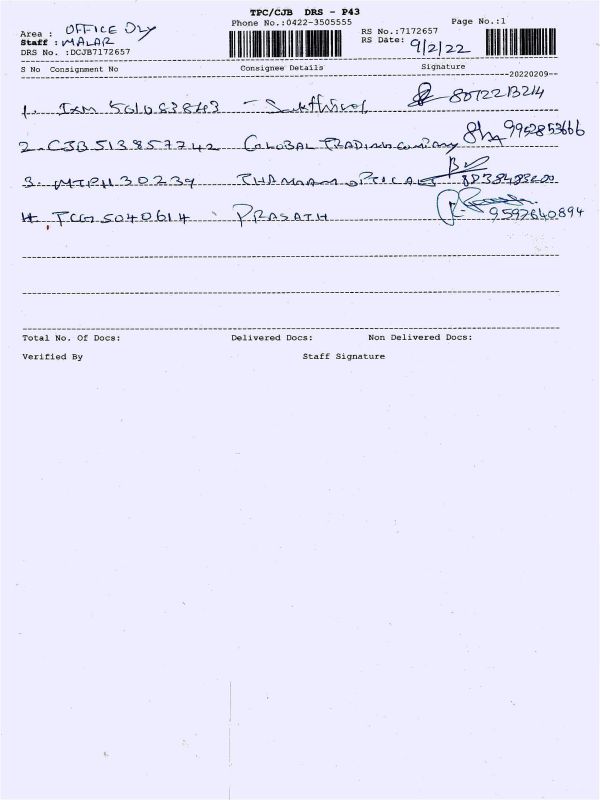 TPC/CJB DRS - P43
Phone No.:0422-3505555 Page No.:1
Area : OFFICE DLY
RS No.:7172657
Staff : MALAR
RS Date: 9/2/22
DRS No. :DCJB7172657
S No Consignment No Consignee Details Signature
20220209
1. IXM 8072213214
2. CJB513857742 GLOBAL TRADING COMPANY 9952853666
3. MTPH30239 OPTICALS
4. TCG5040614 PRASATH 9597640894
Total No. Of Docs: Delivered Docs: Non Delivered Docs:
Verified By Staff Signature